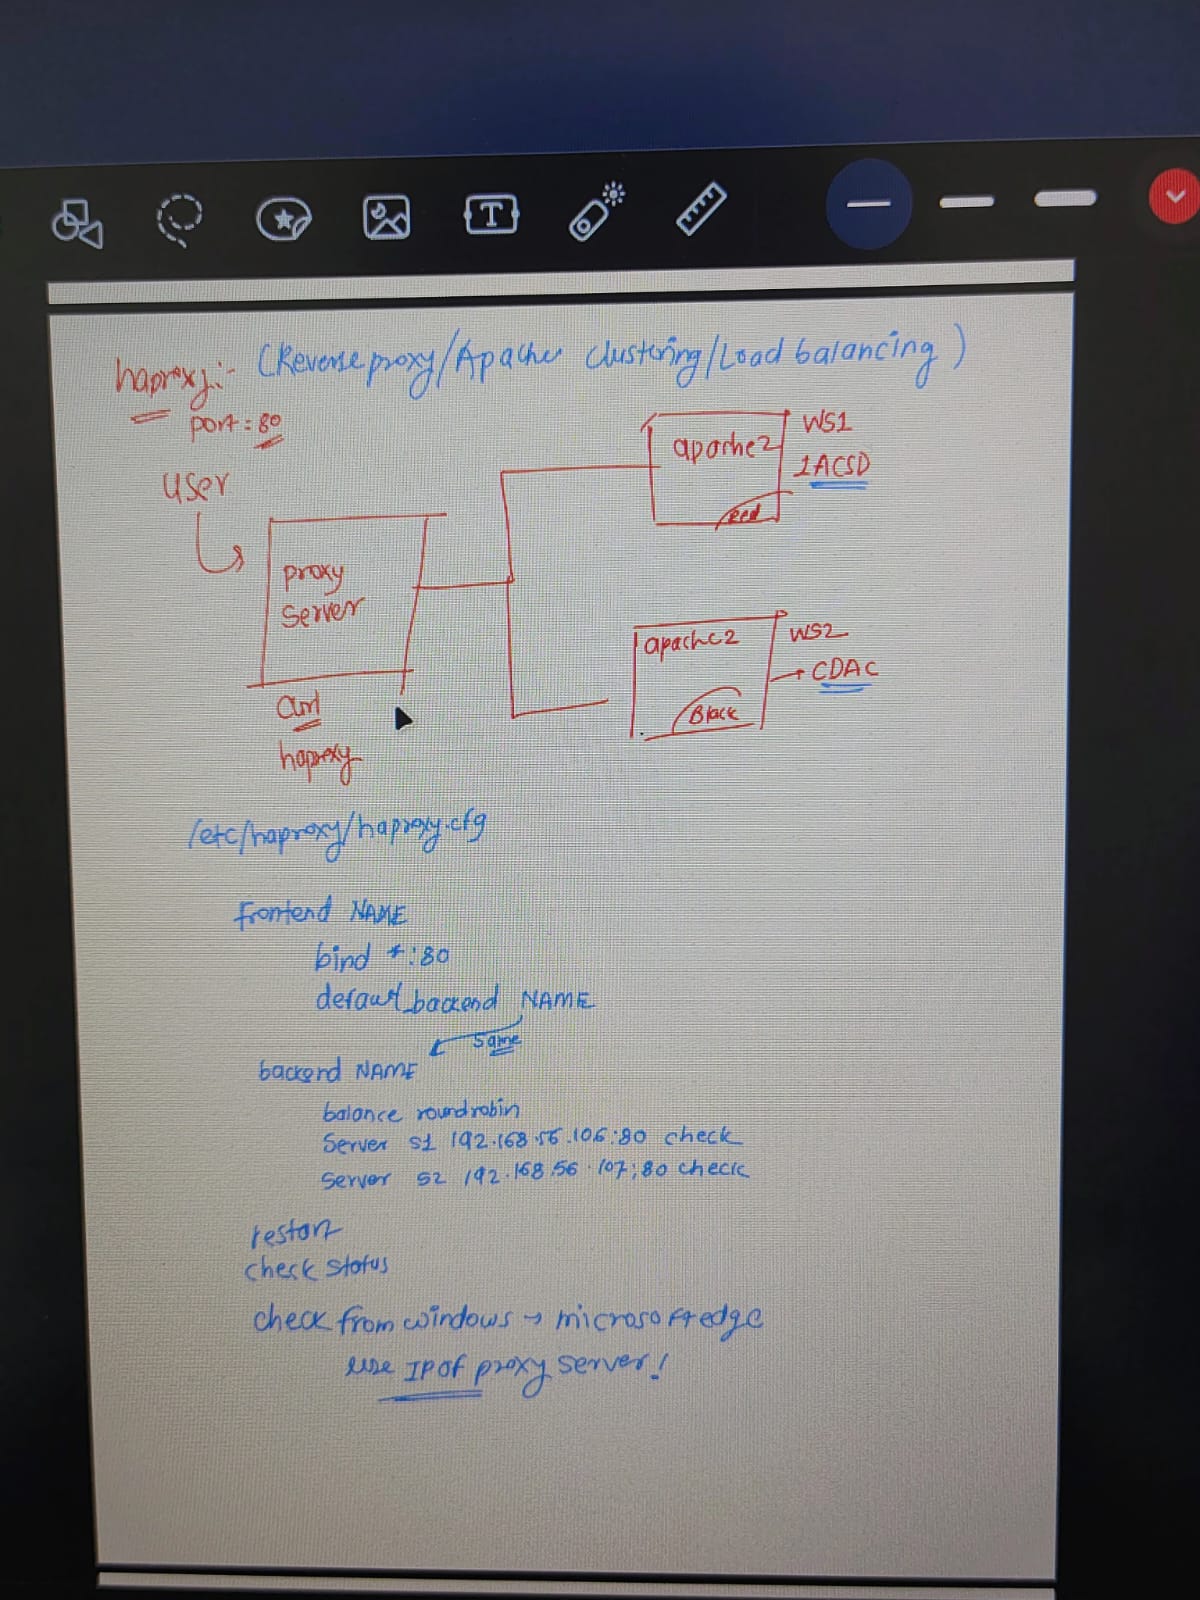 haproxy:- (Reverse proxy/Apache clustering/Load balancing)
port = 80
user
proxy
server
curl
haproxy
apache2
Red
WS1
IACSD
apache2
Black
WS2
CDAC
/etc/haproxy/haproxy.cfg
frontend NAME
bind *:80
default_backend NAME
same
backend NAME
balance roundrobin
Server s1 192.168.56.106:80 check
Server s2 192.168.56.107:80 check
restart
check status
check from windows → microsoft edge
use IP of proxy server!